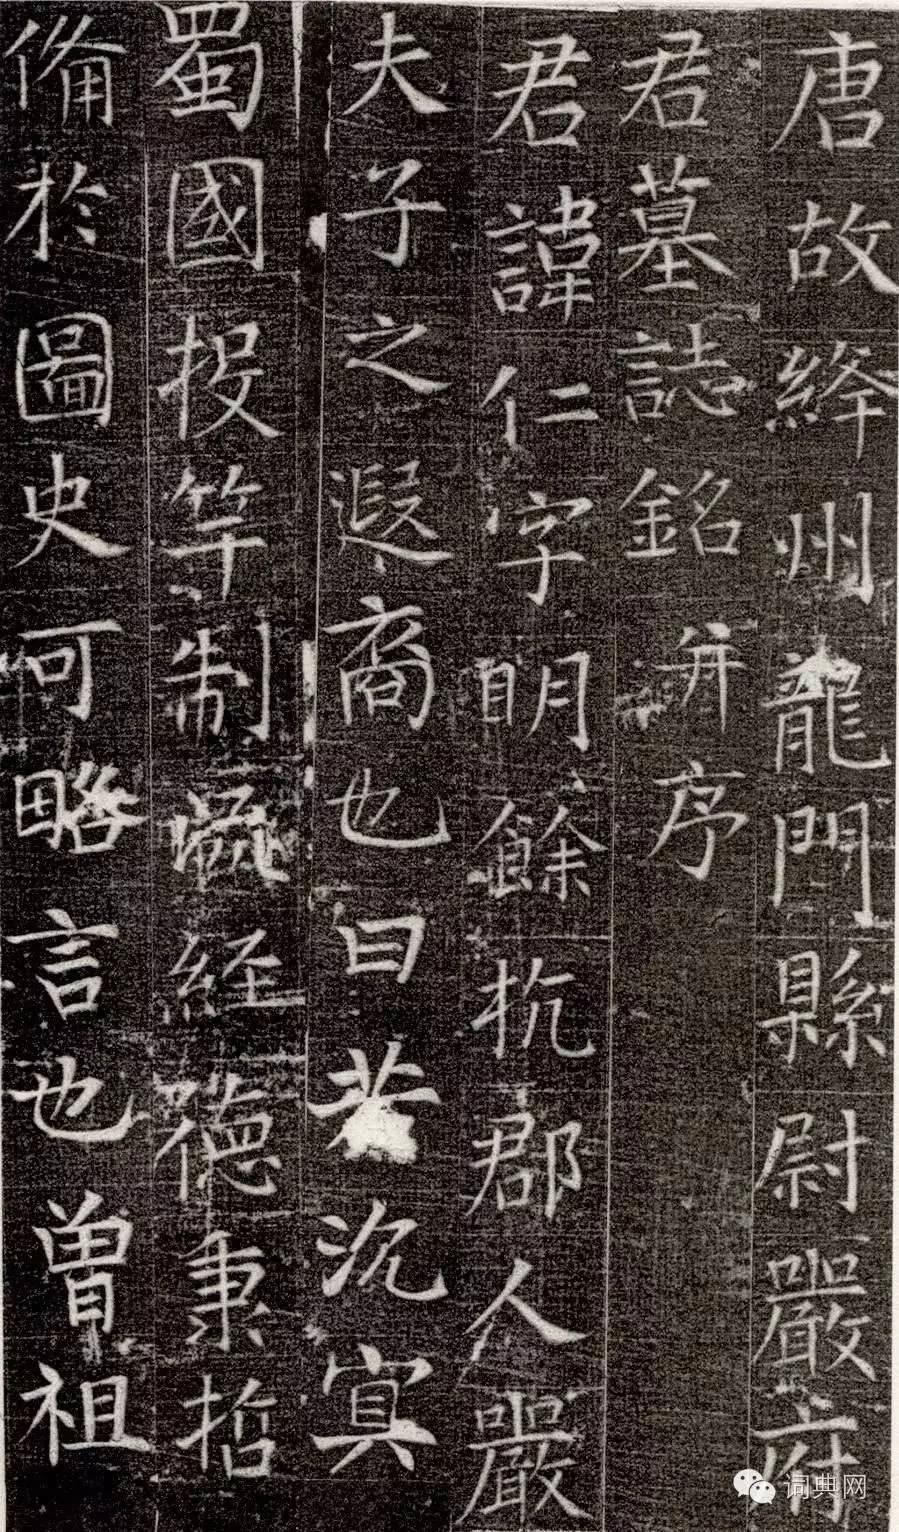 唐故絳州龍門縣尉嚴府
君墓誌銘并序
君諱仁字明餘杭郡人嚴
夫子之遐裔也曰若沉冥
蜀國投竿制 經德秉哲
備於圖史可略言也曾祖
词典网